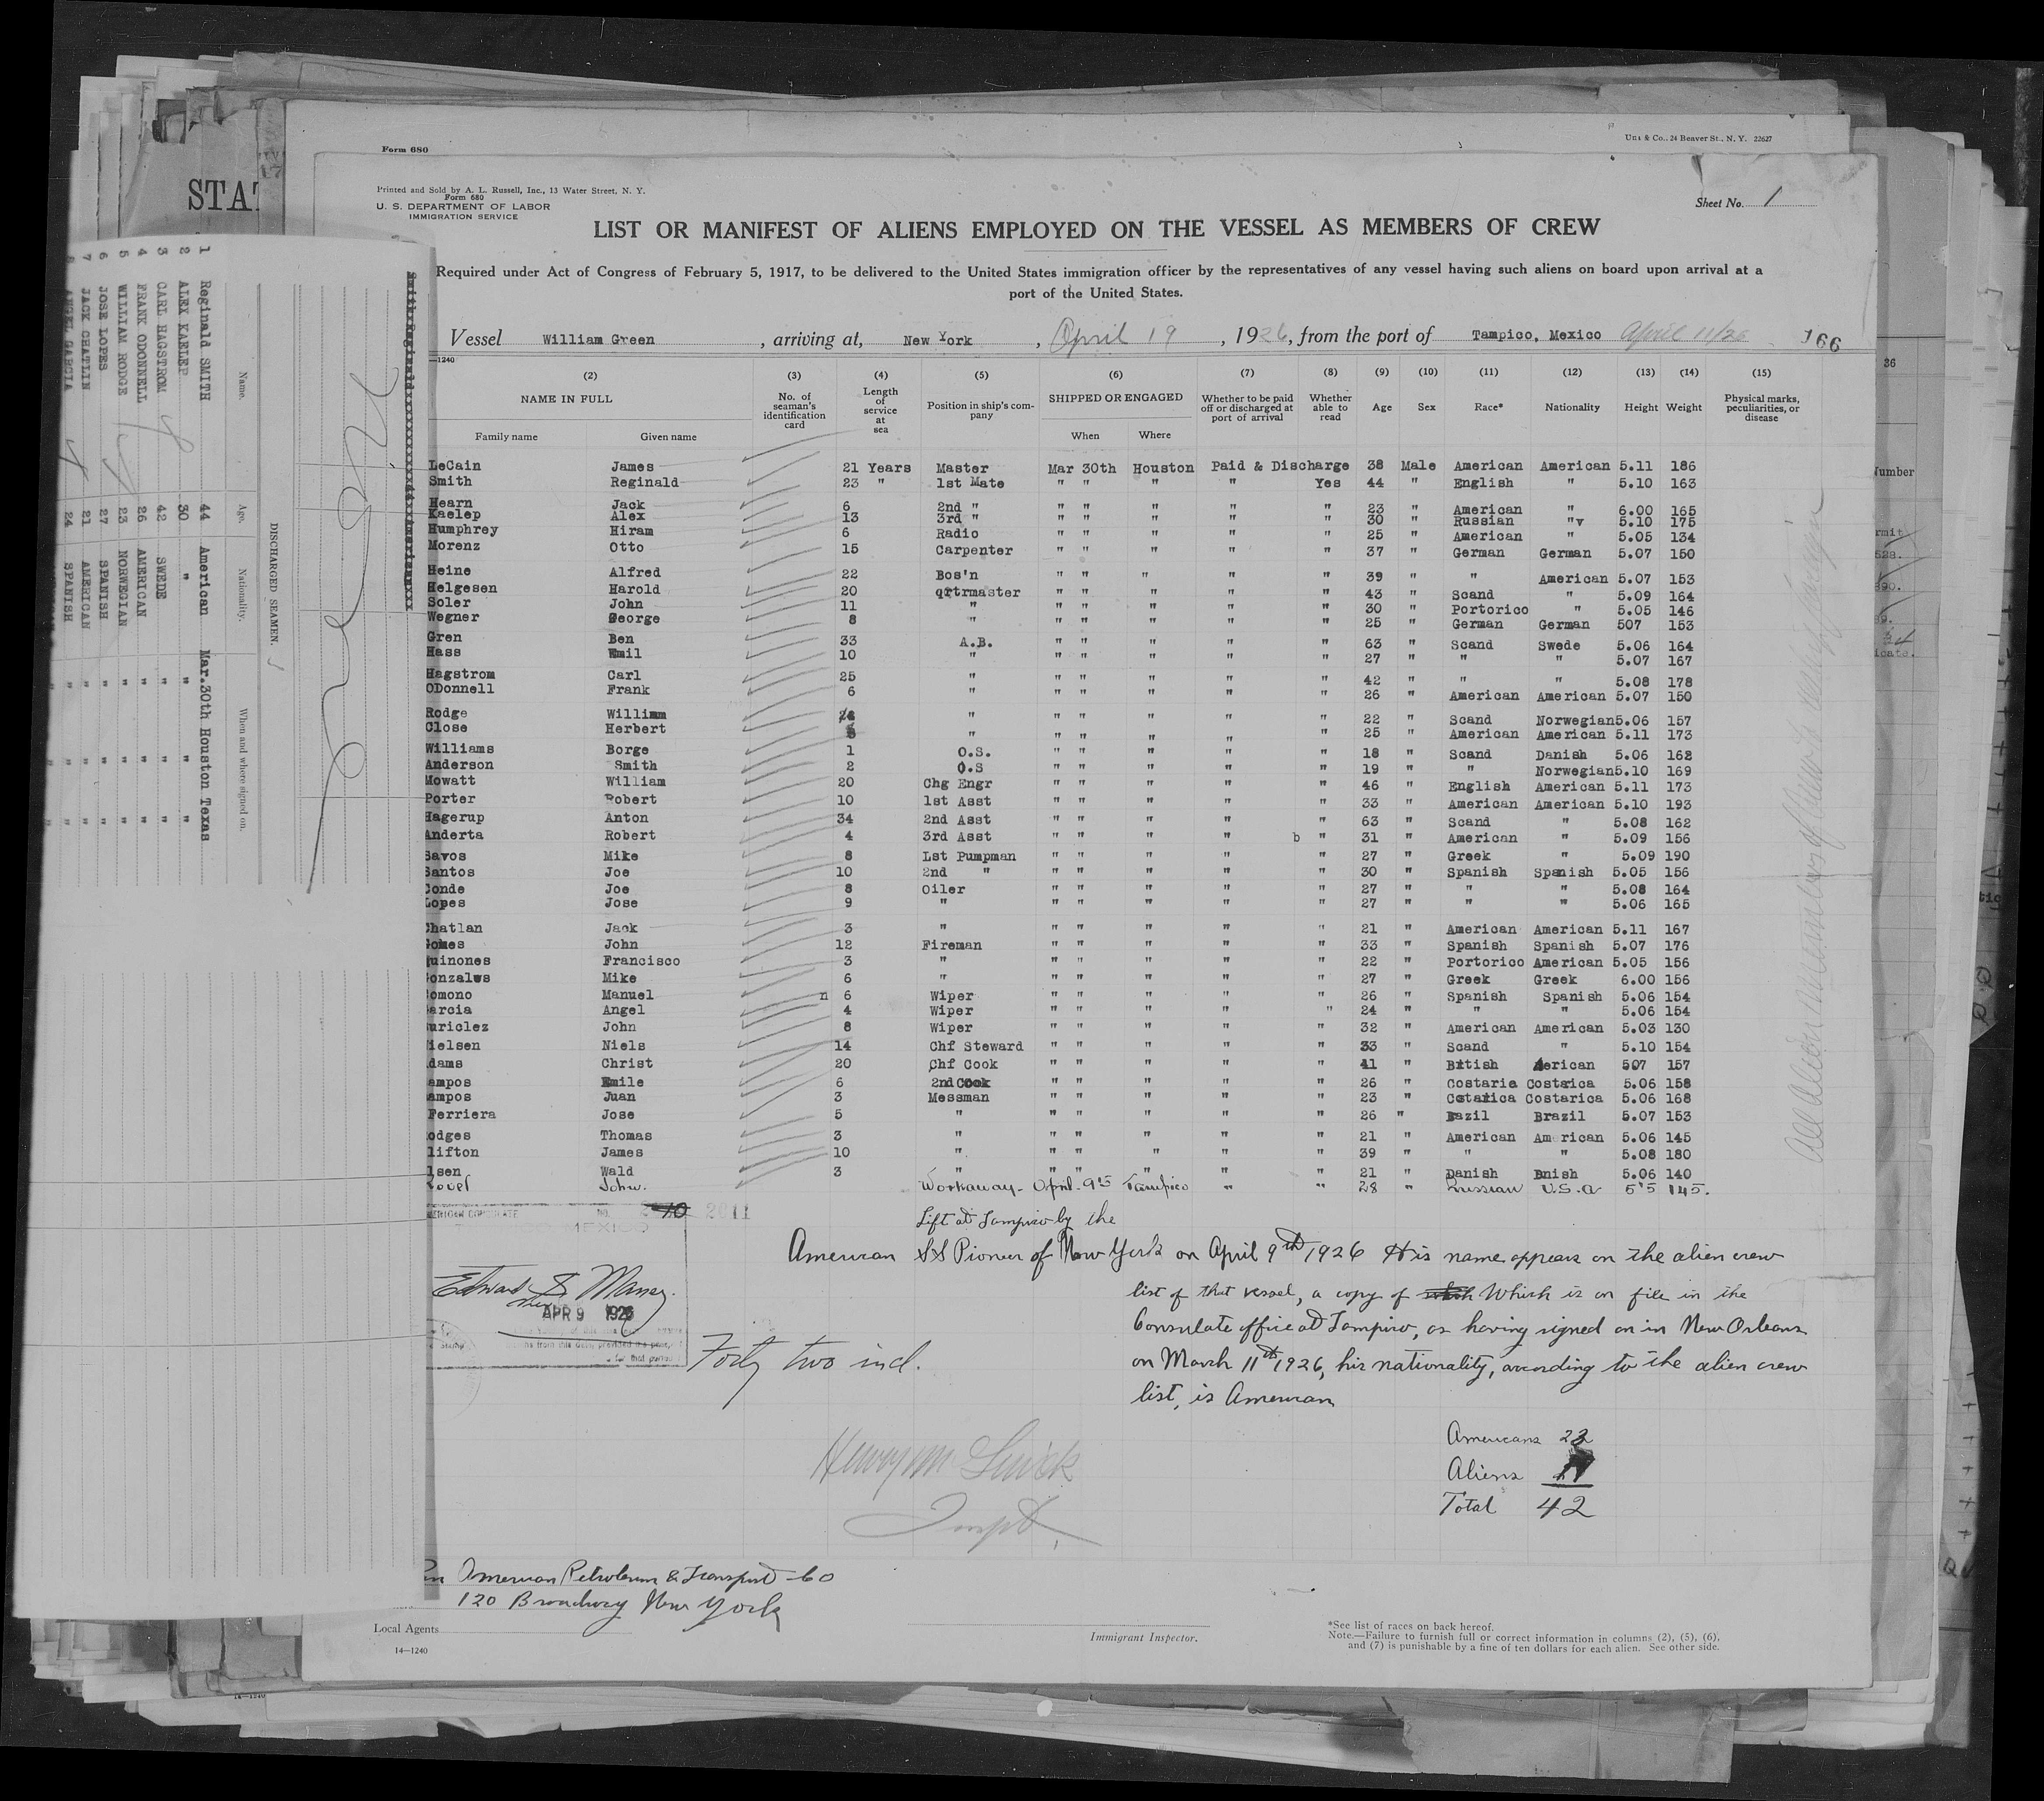 Form 680
Una & Co., 24 Beaver St., N. Y. 22627
STAT
Printed and Sold by A. L. Russell, Inc., 13 Water Street, N. Y.
Form 680
U. S. DEPARTMENT OF LABOR
IMMIGRATION SERVICE
Sheet No. 1
LIST OR MANIFEST OF ALIENS EMPLOYED ON THE VESSEL AS MEMBERS OF CREW
Required under Act of Congress of February 5, 1917, to be delivered to the United States immigration officer by the representatives of any vessel having such aliens on board upon arrival at a
port of the United States.
Vessel William Green, arriving at, New York, April 19, 1926, from the port of Tampico, Mexico April 11/26 166
—1240
(2) (3) (4) (5) (6) (7) (8) (9) (10) (11) (12) (13) (14) (15)
NAME IN FULL No. of seaman's identification card Length of service at sea Position in ship's company SHIPPED OR ENGAGED Whether to be paid off or discharged at port of arrival Whether able to read Age Sex Race* Nationality Height Weight Physical marks, peculiarities, or disease
Family name Given name When Where
LeCain James 21 Years Master Mar 30th Houston Paid & Discharge 38 Male American American 5.11 186
Smith Reginald 23 " 1st Mate " " " " Yes 44 " English " 5.10 163
Hearn Jack 6 2nd " " " " " " 23 " American " 6.00 165
Kaelep Alex 13 3rd " " " " " " 30 " Russian "v 5.10 175
Humphrey Hiram 6 Radio " " " " " 25 " American " 5.05 134
Morenz Otto 15 Carpenter " " " " " 37 " German German 5.07 150
Heine Alfred 22 Bos'n " " " " " 39 " " American 5.07 153
Helgesen Harold 20 qrtrmaster " " " " " 43 " Scand " 5.09 164
Soler John 11 " " " " " " 30 " Portorico " 5.05 146
Wegner George 8 " " " " " " 25 " German German 507 153
Gren Ben 33 A.B. " " " " " 63 " Scand Swede 5.06 164
Hass Emil 10 " " " " " " 27 " " " 5.07 167
Hagstrom Carl 25 " " " " " " 42 " " " 5.08 178
ODonnell Frank 6 " " " " " " 26 " American American 5.07 150
Rodge William " " " " " " 22 " Scand Norwegian 5.06 157
Close Herbert " " " " " " 25 " American American 5.11 173
Williams Borge 1 O.S. " " " " " 18 " Scand Danish 5.06 162
Anderson Smith 2 O.S " " " " " 19 " " Norwegian 5.10 169
Mowatt William 20 Chg Engr " " " " " 46 " English American 5.11 173
Porter Robert 10 1st Asst " " " " " 33 " American American 5.10 193
Hagerup Anton 34 2nd Asst " " " " " 63 " Scand " 5.08 162
Anderta Robert 4 3rd Asst " " " " b " 31 " American " 5.09 156
Savos Mike 8 Lst Pumpman " " " " " 27 " Greek " 5.09 190
Santos Joe 10 2nd " " " " " " 30 " Spanish Spanish 5.05 156
Conde Joe 8 Oiler " " " " " 27 " " " 5.08 164
Lopes Jose 9 " " " " " " 27 " " " 5.06 165
Chatlan Jack 3 " " " " " " 21 " American American 5.11 167
Gomes John 12 Fireman " " " " " 33 " Spanish Spanish 5.07 176
Quinones Francisco 3 " " " " " " 22 " Portorico American 5.05 156
Gonzales Mike 6 " " " " " " 27 " Greek Greek 6.00 156
omono Manuel n 6 Wiper " " " " " 26 " Spanish Spanish 5.06 154
arcia Angel 4 Wiper " " " " " 24 " " " 5.06 154
uriclez John 8 Wiper " " " " " 32 " American American 5.03 130
ielsen Niels 14 Chf Steward " " " " " 33 " Scand " 5.10 154
dams Christ 20 Chf Cook " " " " " 41 " Bitish Aerican 507 157
ampos Emile 6 2nd Cook " " " " " 26 " Costaria Costarica 5.06 158
ampos Juan 3 Messman " " " " " 23 " Cstarica Costarica 5.06 168
Ferriera Jose 5 " " " " " " 26 " Bazil Brazil 5.07 153
odges Thomas 3 " " " " " " 21 " American American 5.06 145
lifton James 10 " " " " " " 39 " " " 5.08 180
lsen Wald 3 " " " " " " 21 " Danish Dnish 5.06 140
John. Workaway- April-9th Tampico " " 28 " Russian U.S.a 5'5 145.
NO. 2011
MEXICO
Left at Tampico by the
American SS Pioneer of New York on April 9th 1926 His name appears on the alien crew
list of that vessel, a copy of which is on file in the
Consulate office at Tampico, as having signed on in New Orleans
on March 11th 1926, his nationality, according to the alien crew
list, is American
APR 9 1926
Forty two incl.
Americans 22
Aliens
Total 42
American Petroleum & Transport Co
120 Broadway New York
Local Agents
14—1240
Immigrant Inspector.
*See list of races on back hereof.
Note.—Failure to furnish full or correct information in columns (2), (5), (6),
and (7) is punishable by a fine of ten dollars for each alien. See other side.
DISCHARGED SEAMEN.
Name. Age. Nationality. When and where signed on.
1 Reginald SMITH 44 American Mar.30th Houston Texas
2 ALEX KAELEP 30 " " " "
3 CARL HAGSTROM 42 SWEDE " " "
4 FRANK ODONNELL 26 AMERICAN " " "
5 WILLIAM RODGE 23 NORWEGIAN " " "
6 JOSE LOPES 27 SPANISH " " "
7 JACK CHATLIN 21 AMERICAN " " "
8 ANGEL GARCIA 24 SPANISH " " "
36
umber